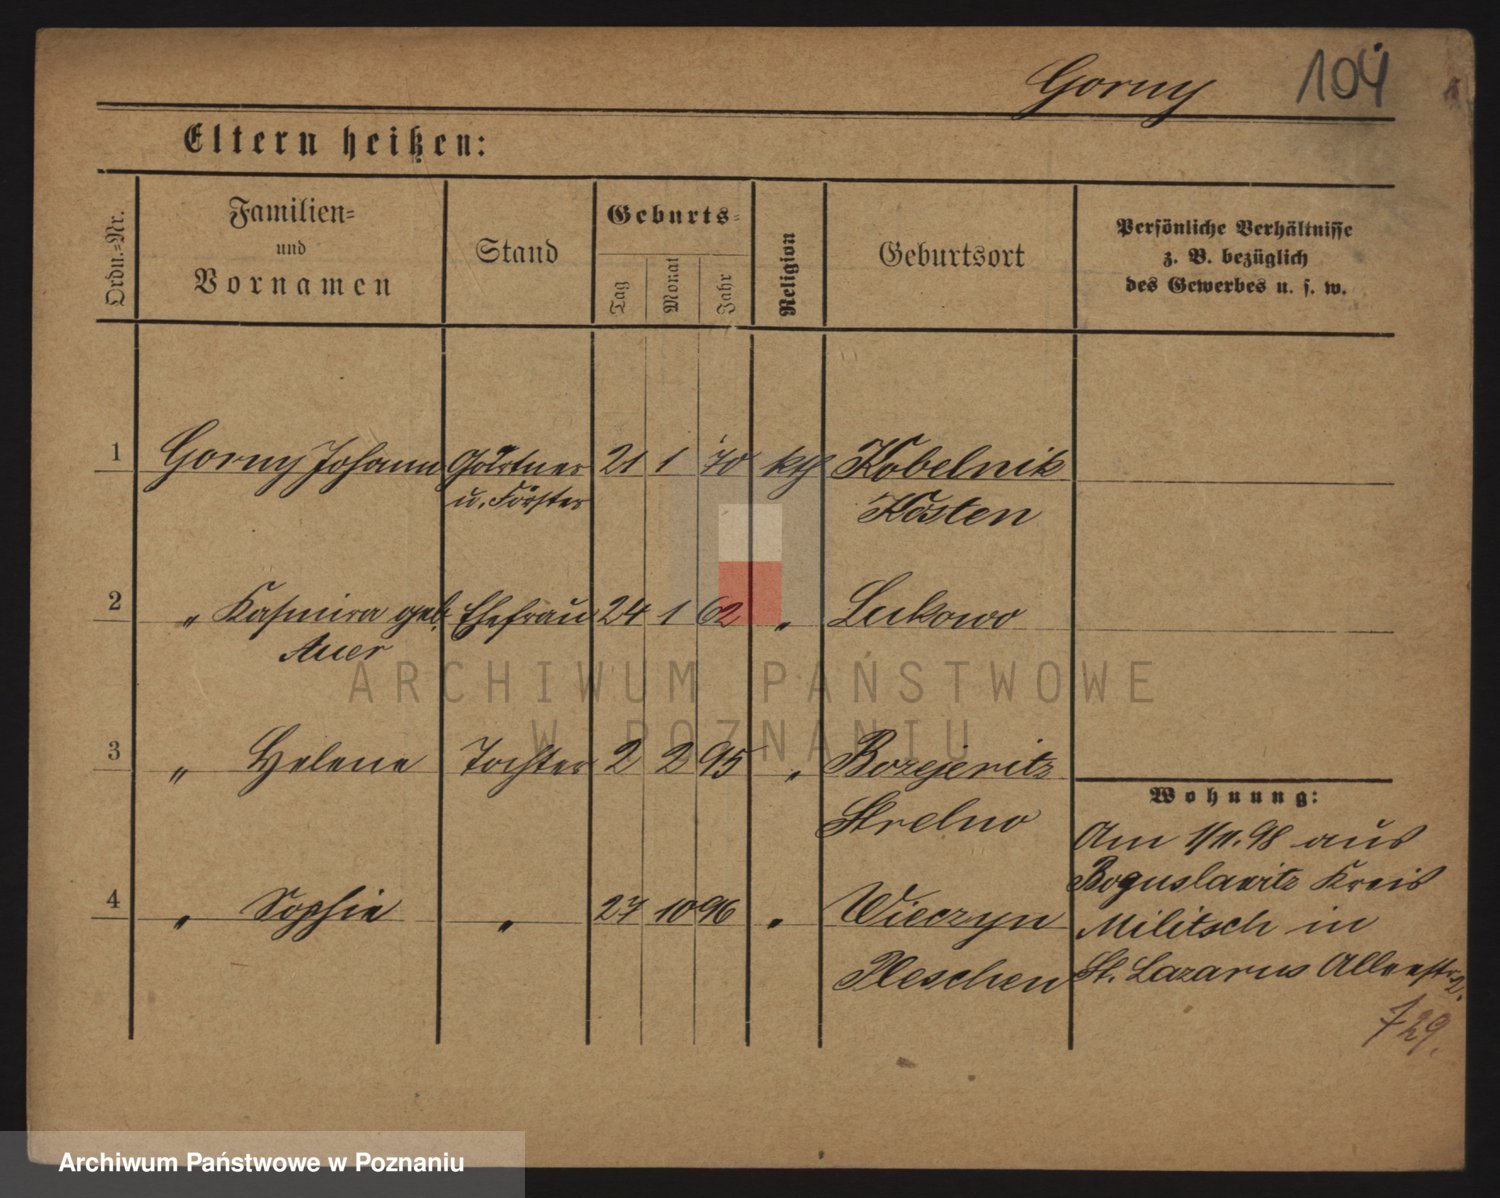 Gorny 104
Eltern heißen:
Ordn.-Nr.
Familien-
und
Vornamen
Stand
Geburts-
Tag
Monat
Jahr
Religion
Geburtsort
Persönliche Verhältnisse
z. B. bezüglich
des Gewerbes u. s. w.
1 Gorny Johann Gärtner 21 1 70 kth Kobelnik
u. Förster Kosten
2 " Kasmira geb. Ehefrau 24 1 62 " Lukowo
Auer
ARCHIWUM PAŃSTWOWE
W POZNANIU
3 " Helene Tochter 2 2 95 " Bozejewitz
Strelno
4 " Sophie " 27 10 96 " Wieczyn
Pleschen
Wohnung:
Am 1/11.98 aus
Boguslawitz Kreis
Militsch in
St. Lazarus
729.
Archiwum Państwowe w Poznaniu